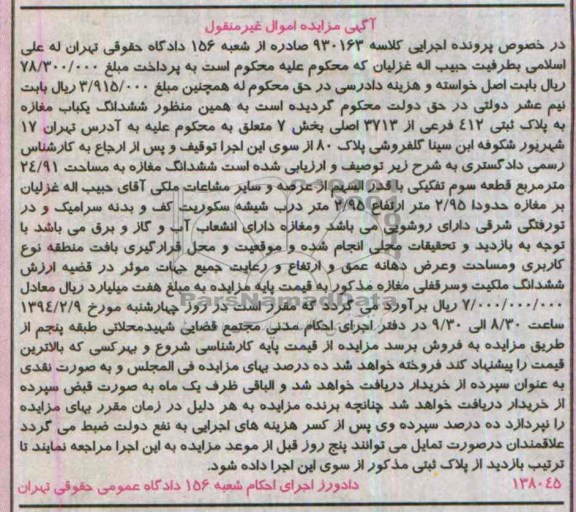 آگهی مزایده اموال غیرمنقول
در خصوص پرونده اجرایی کلاسه ۹۳۰۱۶۳ صادره از شعبه ۱۵۶ دادگاه حقوقی تهران له علی
اسلامی بطرفیت حبیب اله غزلیان که محکوم علیه محکوم است به پرداخت مبلغ ۷۸/۳۰۰/۰۰۰
ریال بابت اصل خواسته و هزینه دادرسی در حق محکوم له همچنین مبلغ ۳/۹۱۵/۰۰۰ ریال بابت
نیم عشر دولتی در حق دولت محکوم گردیده است به همین منظور ششدانگ یکباب مغازه
به پلاک ثبتی ۴۱۲ فرعی از ۳۷۱۳ اصلی بخش ۷ متعلق به محکوم علیه به آدرس تهران ۱۷
شهریور شکوفه ابن سینا گلفروشی پلاک ۸۰ از سوی این اجرا توقیف و پس از ارجاع به کارشناس
رسمی دادگستری به شرح زیر توصیف و ارزیابی شده است ششدانگ مغازه به مساحت ۲۴/۹۱
مترمربع قطعه سوم تفکیکی با قدر السهم از عرصه و سایر مشاعات ملکی آقای حبیب اله غزلیان
بر مغازه حدودا ۲/۹۵ متر ارتفاع ۳/۹۵ متر درب شیشه سکوریت کف و بدنه سرامیک و در
تورفتگی شرقی دارای روشویی می باشد ومغازه دارای انشعاب آب و گاز و برق می باشد با
توجه به بازدید و تحقیقات محلی انجام شده و موقعیت و محل قرارگیری بافت منطقه نوع
کاربری ومساحت وعرض دهانه عمق و ارتفاع و رعایت جمیع جهات موثر در قضیه ارزش
ششدانگ ملکیت وسرقفلی مغازه مذکور به قیمت پایه مزایده به مبلغ هفت میلیارد ریال معادل
۷/۰۰۰/۰۰۰/۰۰۰ ریال برآورد می گردد که مقرر است در روز چهارشنبه مورخ ۱۳۹۴/۲/۹
ساعت ۸/۳۰ الی ۹/۳۰ در دفتر اجرای احکام مدنی مجتمع قضایی شهیدمحلاتی طبقه پنجم از
طریق مزایده به فروش برسد مزایده از قیمت پایه کارشناسی شروع و بهرکسی که بالاترین
قیمت را پیشنهاد کند فروخته خواهد شد ده درصد بهای مزایده فی المجلس و به صورت نقدی
به عنوان سپرده از خریدار دریافت خواهد شد و الباقی ظرف یک ماه به صورت قبض سپرده
از خریدار دریافت خواهد شد چنانچه برنده مزایده به هر دلیل در زمان مقرر بهای مزایده
را نپردازد ده درصد سپرده وی پس از کسر هزینه های اجرایی به نفع دولت ضبط می گردد
علاقمندان درصورت تمایل می توانند پنج روز قبل از موعد مزایده به این اجرا مراجعه نمایند تا
ترتیب بازدید از پلاک ثبتی مذکور از سوی این اجرا داده شود.
۱۳۸۰۴۵ دادورز اجرای احکام شعبه ۱۵۶ دادگاه عمومی حقوقی تهران
ParsNamadData